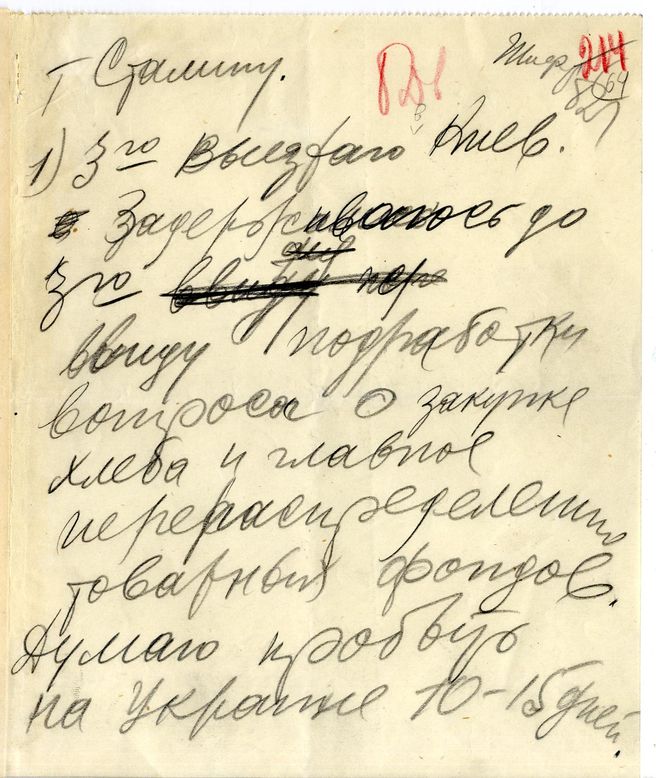 Шифр 214
64
82
Т Сталину.
1) 3го выезжаю в Киев.
Задерживаюсь до
3го
ввиду подработки
вопроса о закупке
хлеба и главное
перераспределении
товарных фондов.
Думаю пробыть
на Украине 10-15 дней.